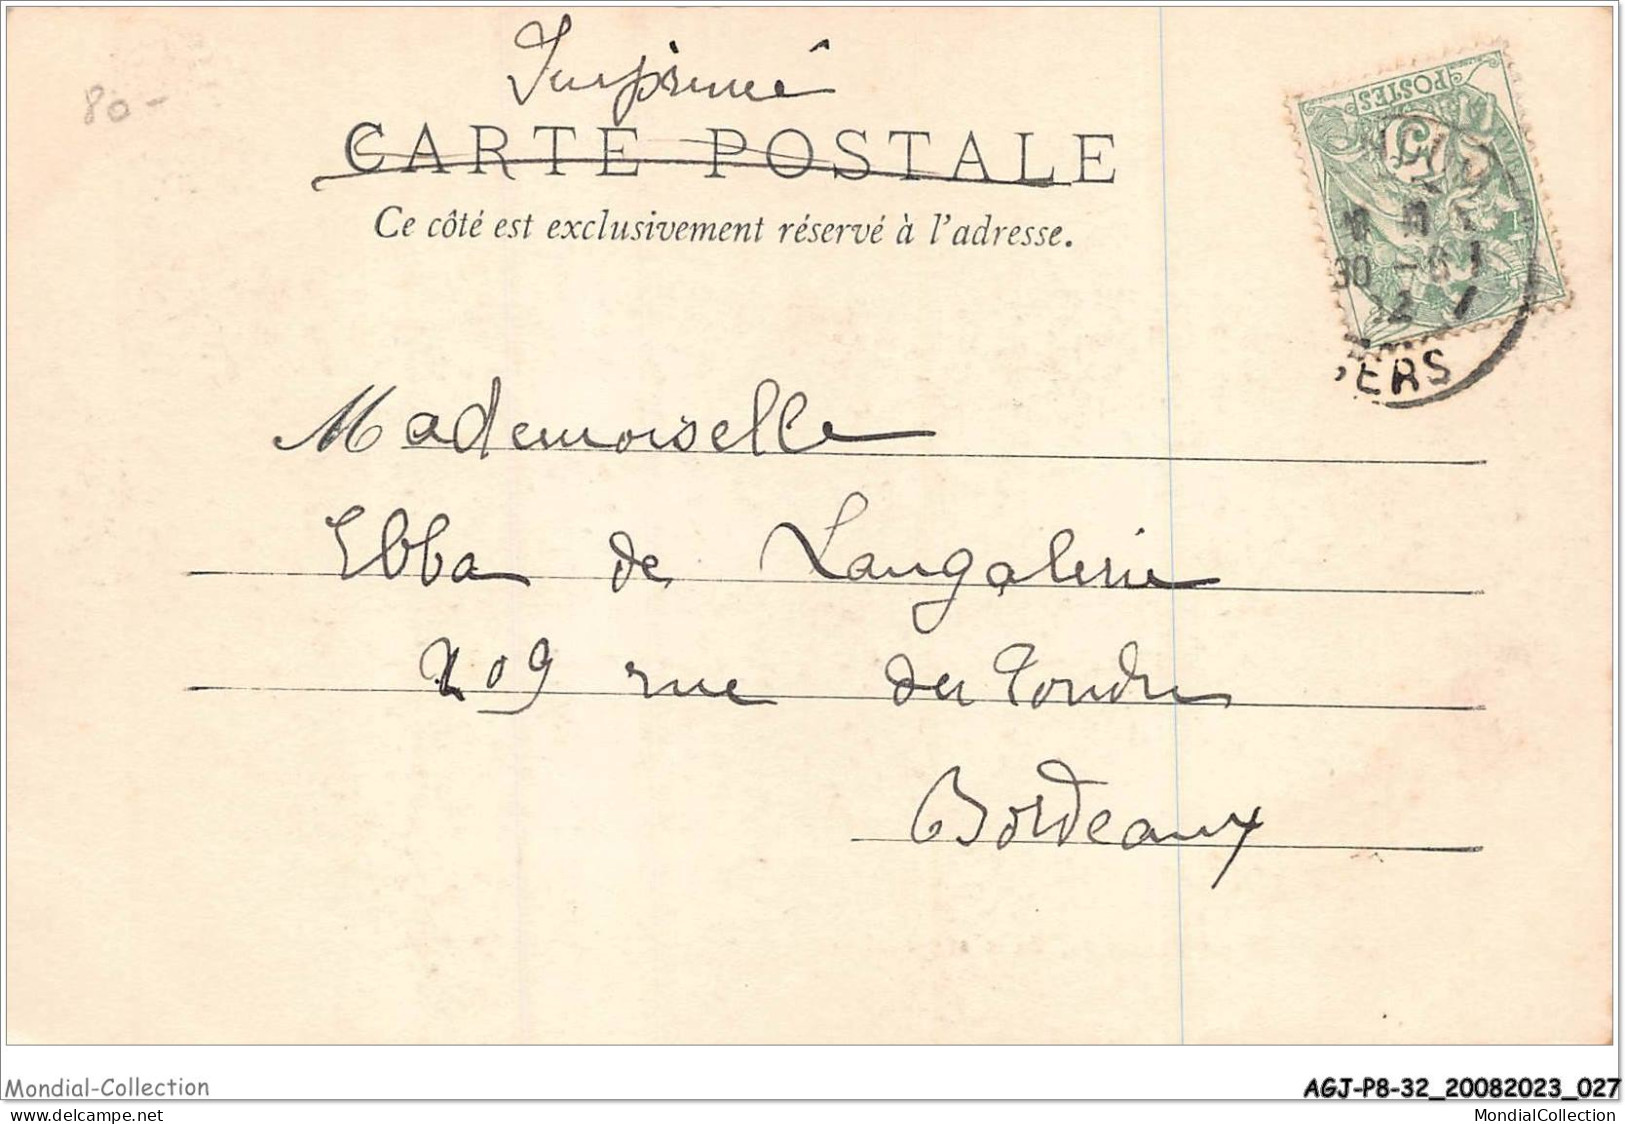 Imprimé
80-
CARTE POSTALE
Ce côté est exclusivement réservé à l'adresse.
POSTES
5
30
ERS
Mademoiselle
Ebba de Langalerie
209 rue du Tondu
Bordeaux
Mondial-Collection
AGJ-P8-32_20082023_027
www.delcampe.net
MondialCollection